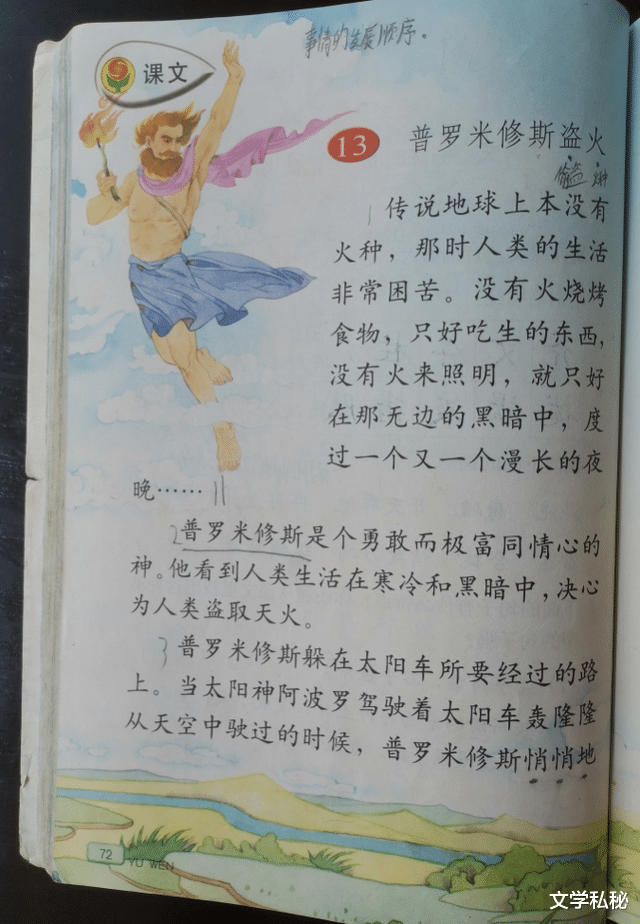 事情的发展顺序。
课文
13 普罗米修斯盗火
偷盗
1 传说地球上本没有
火种，那时人类的生活
非常困苦。没有火烧烤
食物，只好吃生的东西，
没有火来照明，就只好
在那无边的黑暗中，度
过一个又一个漫长的夜
晚……
2 普罗米修斯是个勇敢而极富同情心的
神。他看到人类生活在寒冷和黑暗中，决心
为人类盗取天火。
3 普罗米修斯躲在太阳车所要经过的路
上。当太阳神阿波罗驾驶着太阳车轰隆隆
从天空中驶过的时候，普罗米修斯悄悄地
72
YU WEN
文学私秘